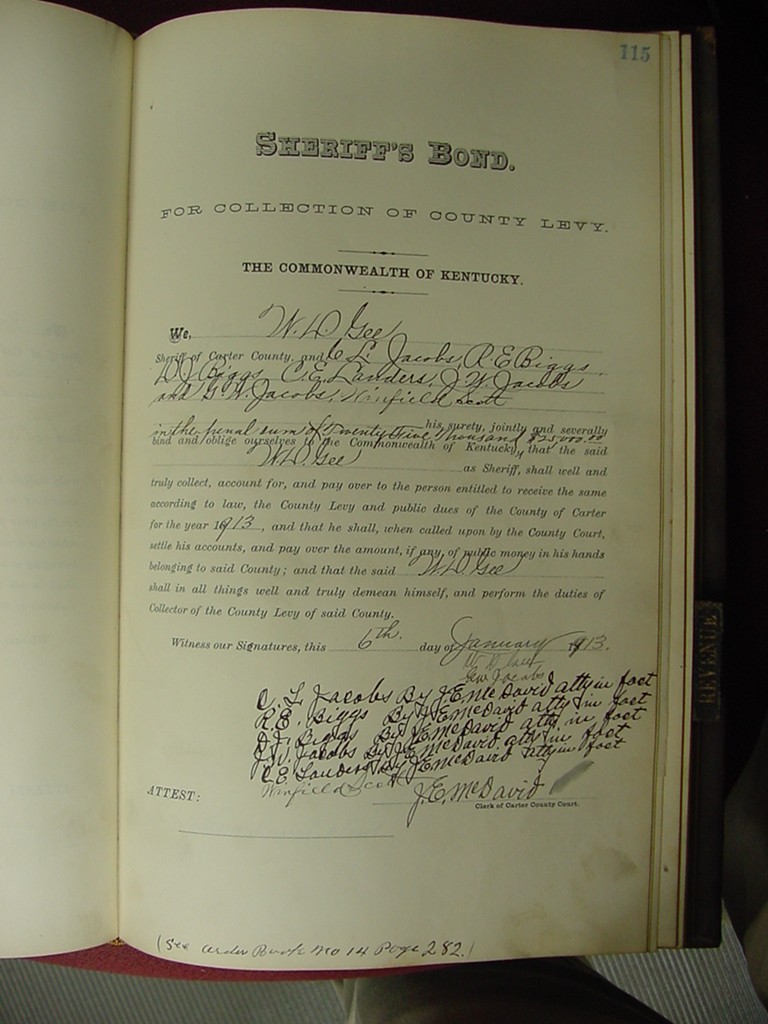 115
SHERIFF'S BOND.
FOR COLLECTION OF COUNTY LEVY.
THE COMMONWEALTH OF KENTUCKY.
We, W. D. Gee
Sheriff of Carter County, and C. L. Jacobs, R. E. Biggs,
D. J. Biggs, C. E. Landers, J. W. Jacobs
and G. W. Jacobs, Winfield Scott
his surety, jointly and severally
in the penal sum of Twenty five Thousand $25,000.00
bind and oblige ourselves to the Commonwealth of Kentucky, that the said
W. D. Gee as Sheriff, shall well and
truly collect, account for, and pay over to the person entitled to receive the same
according to law, the County Levy and public dues of the County of Carter
for the year 1913, and that he shall, when called upon by the County Court,
settle his accounts, and pay over the amount, if any, of public money in his hands
belonging to said County; and that the said W. D. Gee
shall in all things well and truly demean himself, and perform the duties of
Collector of the County Levy of said County.
Witness our Signatures, this 6th day of January 1913.
W. D. Gee
G. W. Jacobs
C. L. Jacobs By J. E. McDavid atty in fact
R. E. Biggs By J. E. McDavid atty in fact
D. J. Biggs By J. E. McDavid atty in fact
J. W. Jacobs By J. E. McDavid atty in fact
C. E. Landers By J. E. McDavid atty in fact
Winfield Scott
ATTEST: J. E. McDavid
Clerk of Carter County Court.
(See Order Book No 14 Page 282.)
REVENUE